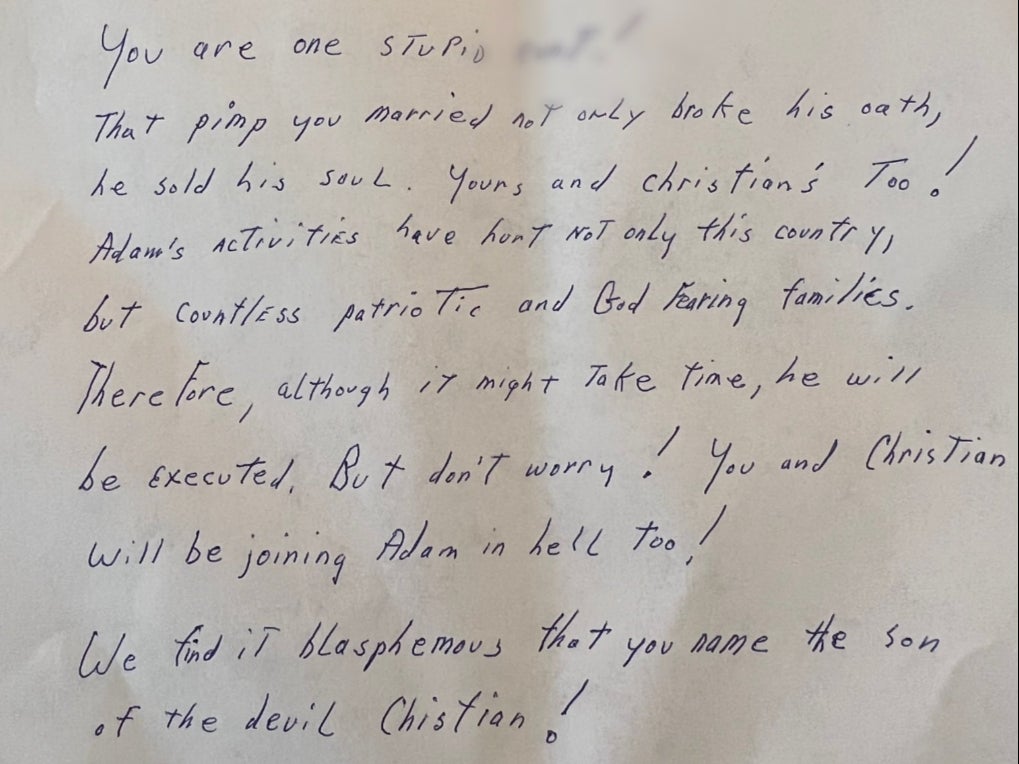 You are one stupid
That pimp you married not only broke his oath,
he sold his soul. Yours and christian's Too!
Adam's activities have hurt not only this country,
but countless patriotic and God Fearing families.
Therefore, although it might Take time, he will
be executed. But don't worry! You and Christian
will be joining Adam in hell too!
We find it blasphemous that you name the son
of the devil Chistian!